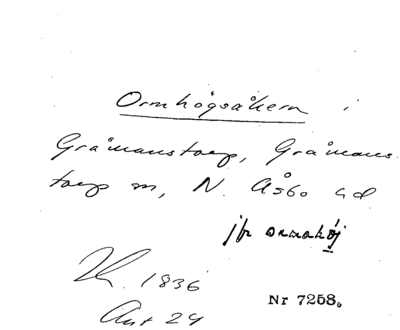 Ormhögsåkern i
Gråmanstorp, Gråmans
torp sn, N. Åsbo hd
jfr ormahöj
Lk. 1836
Akt 24
Nr 7258.